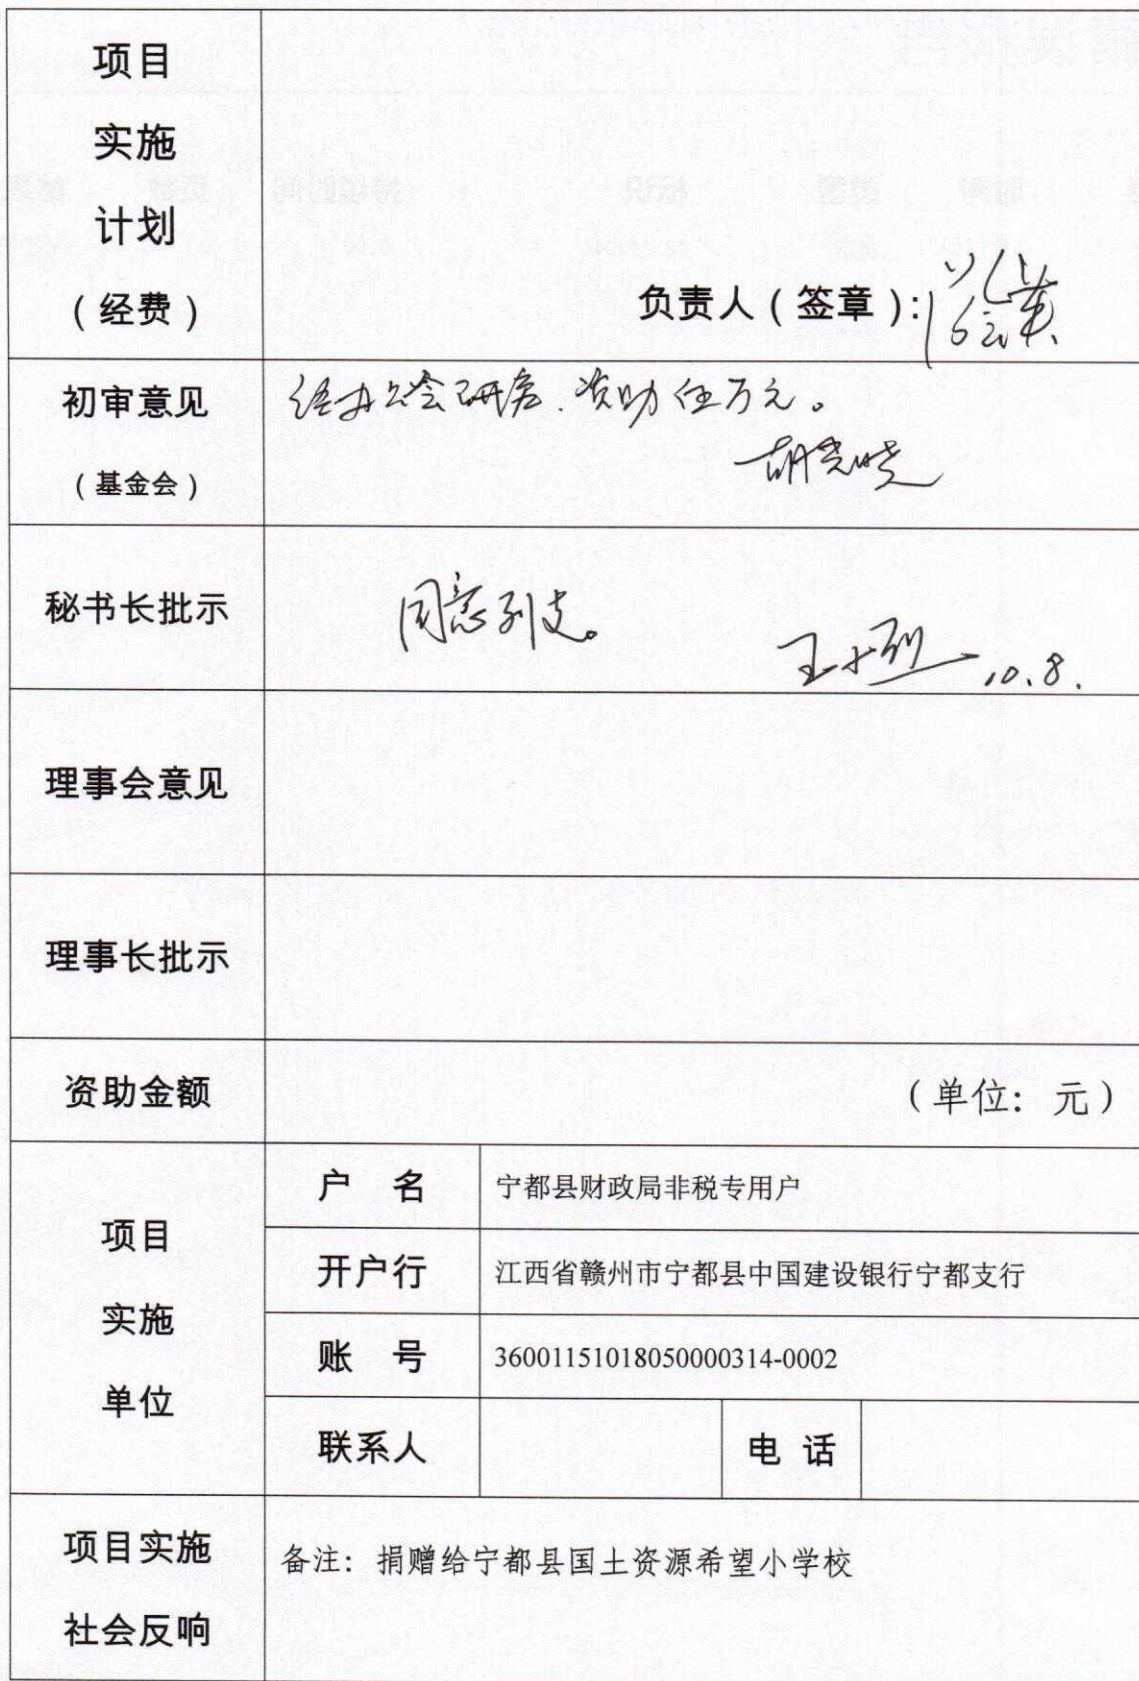 项目
实施
计划
（经费）
负责人（签章）：
初审意见
（基金会）
经办公会研究.资助伍万元。
胡光晓
秘书长批示
同意列支。
10.8.
理事会意见
理事长批示
资助金额
（单位：元）
项目
实施
单位
户 名
宁都县财政局非税专用户
开户行
江西省赣州市宁都县中国建设银行宁都支行
账 号
36001151018050000314-0002
联系人
电 话
项目实施
社会反响
备注：捐赠给宁都县国土资源希望小学校